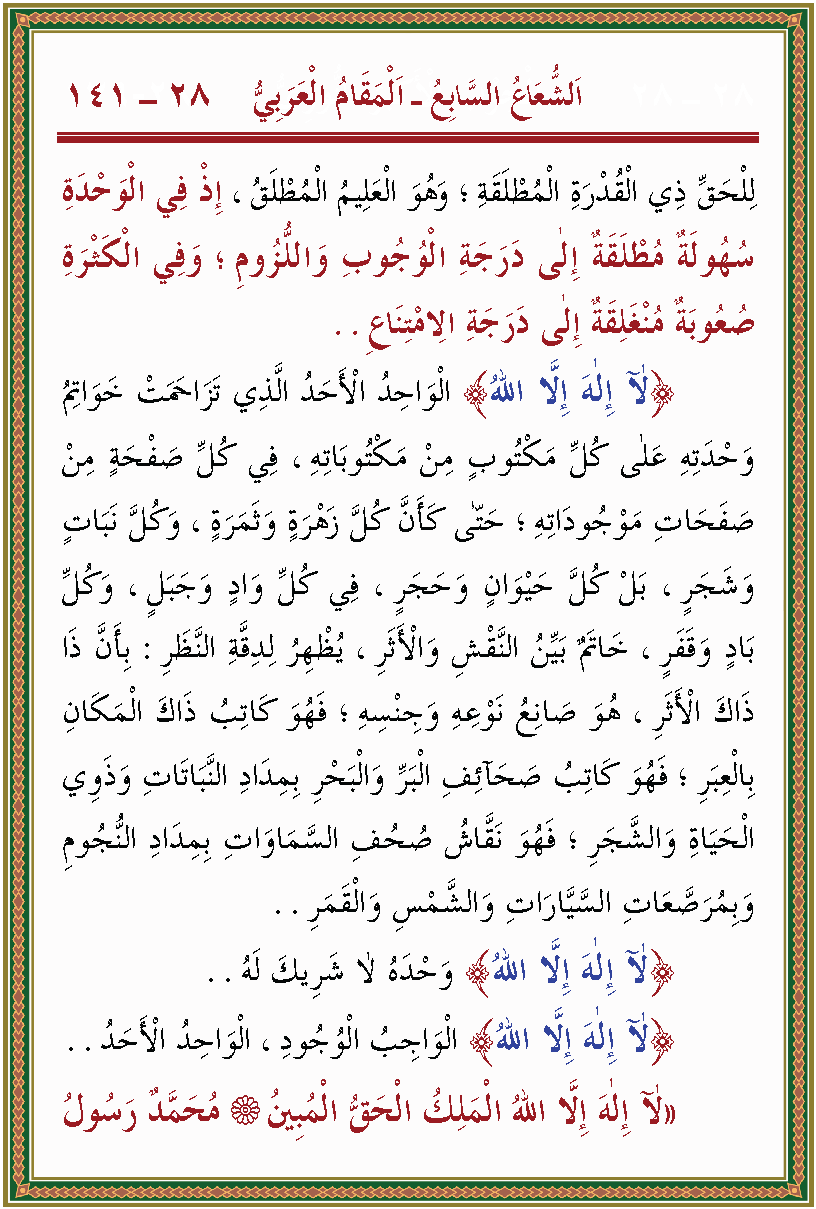 اَلشُّعَاعُ السَّابِعُ ـ اَلْمَقَامُ الْعَرَبِيُّ ٢٨ – ١٤١
لِلْحَقِّ ذِي الْقُدْرَةِ الْمُطْلَقَةِ ؛ وَهُوَ الْعَلِيمُ الْمُطْلَقُ ، إِذْ فِي الْوَحْدَةِ
سُهُولَةٌ مُطْلَقَةٌ إِلٰى دَرَجَةِ الْوُجُوبِ وَاللُّزُومِ ؛ وَفِي الْكَثْرَةِ
صُعُوبَةٌ مُنْغَلِقَةٌ إِلٰى دَرَجَةِ الِامْتِنَاعِ . .
﴿لَآ إِلٰهَ إِلَّا اللهُ﴾ الْوَاحِدُ الْأَحَدُ الَّذِي تَزَاحَمَتْ خَوَاتِمُ
وَحْدَتِهِ عَلٰى كُلِّ مَكْتُوبٍ مِنْ مَكْتُوبَاتِهِ ، فِي كُلِّ صَفْحَةٍ مِنْ
صَفَحَاتِ مَوْجُودَاتِهِ ؛ حَتّٰى كَأَنَّ كُلَّ زَهْرَةٍ وَثَمَرَةٍ ، وَكُلَّ نَبَاتٍ
وَشَجَرٍ ، بَلْ كُلَّ حَيْوَانٍ وَحَجَرٍ ، فِي كُلِّ وَادٍ وَجَبَلٍ ، وَكُلِّ
بَادٍ وَقَفَرٍ ، خَاتَمٌ بَيِّنُ النَّقْشِ وَالْأَثَرِ ، يُظْهِرُ لِدِقَّةِ النَّظَرِ : بِأَنَّ ذَا
ذَاكَ الْأَثَرِ ، هُوَ صَانِعُ نَوْعِهِ وَجِنْسِهِ ؛ فَهُوَ كَاتِبُ ذَاكَ الْمَكَانِ
بِالْعِبَرِ ؛ فَهُوَ كَاتِبُ صَحَآئِفِ الْبَرِّ وَالْبَحْرِ بِمِدَادِ النَّبَاتَاتِ وَذَوِي
الْحَيَاةِ وَالشَّجَرِ ؛ فَهُوَ نَقَّاشُ صُحُفِ السَّمَاوَاتِ بِمِدَادِ النُّجُومِ
وَبِمُرَصَّعَاتِ السَّيَّارَاتِ وَالشَّمْسِ وَالْقَمَرِ . .
﴿لَآ إِلٰهَ إِلَّا اللهُ﴾ وَحْدَهُ لَا شَرِيكَ لَهُ . .
﴿لَآ إِلٰهَ إِلَّا اللهُ﴾ الْوَاجِبُ الْوُجُودِ ، الْوَاحِدُ الْأَحَدُ . .
«لَآ إِلٰهَ إِلَّا اللهُ الْمَلِكُ الْحَقُّ الْمُبِينُ ۞ مُحَمَّدٌ رَسُولُ